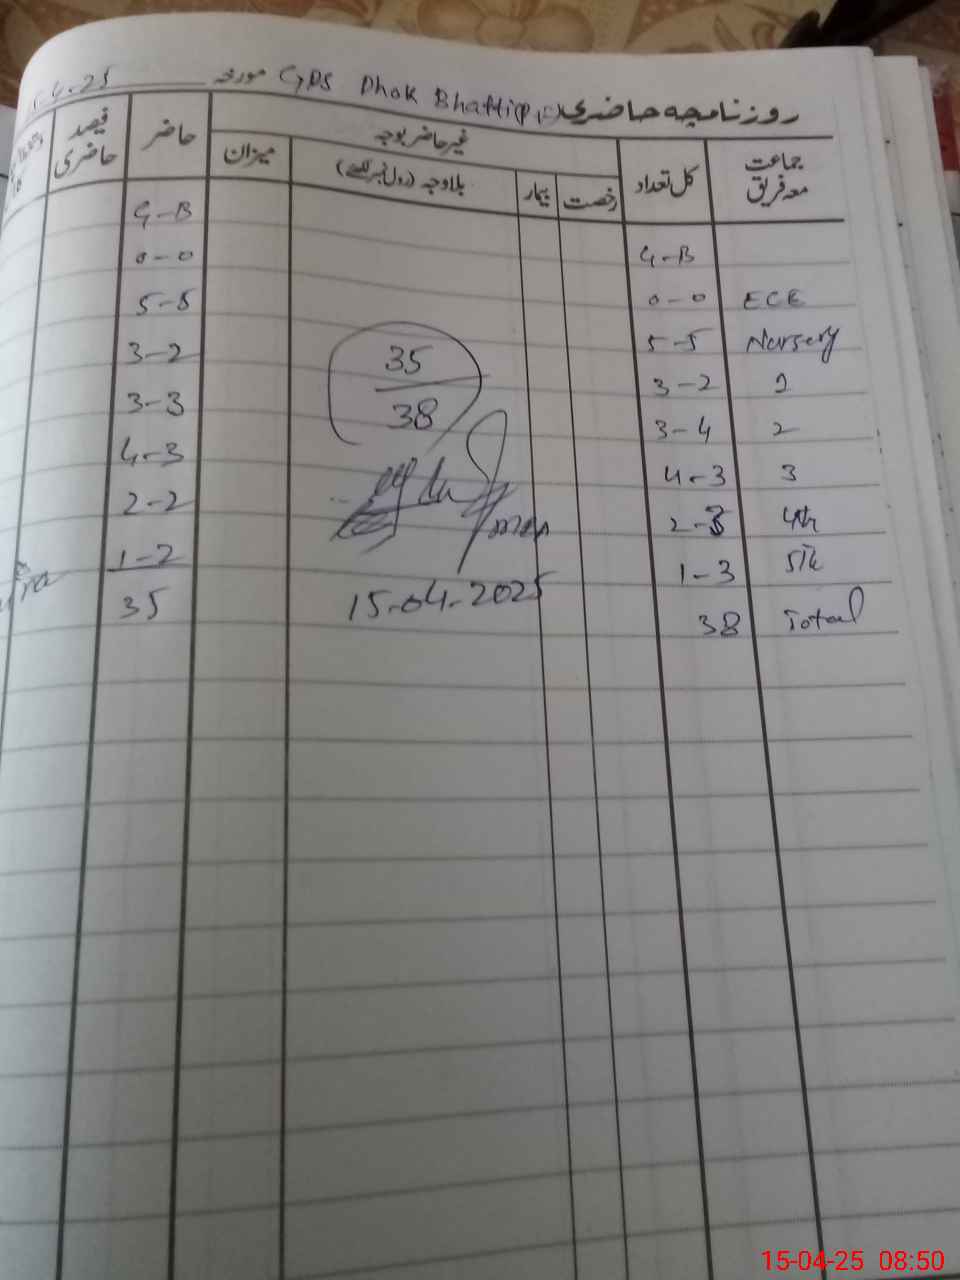 روزنامچہ حاضری GPS Dhok Bhattian مورخہ 15.4.25
جماعت معہ فریق | کل تعداد | غیر حاضر بوجہ | حاضر | فیصد حاضری
رخصت | بیمار | بلاوجہ (رول نمبر لکھیے) | میزان
G-B | G-B
ECE | 0-0 | 0-0
Nursery | 5-5 | 5-5
1 | 3-2 | 3-2
2 | 3-4 | 3-3
3 | 4-3 | 4-3
4th | 2-3 | 2-2
5th | 1-3 | 1-2
Total | 38 | 35
35
38
15-04-2025
15-04-25 08:50